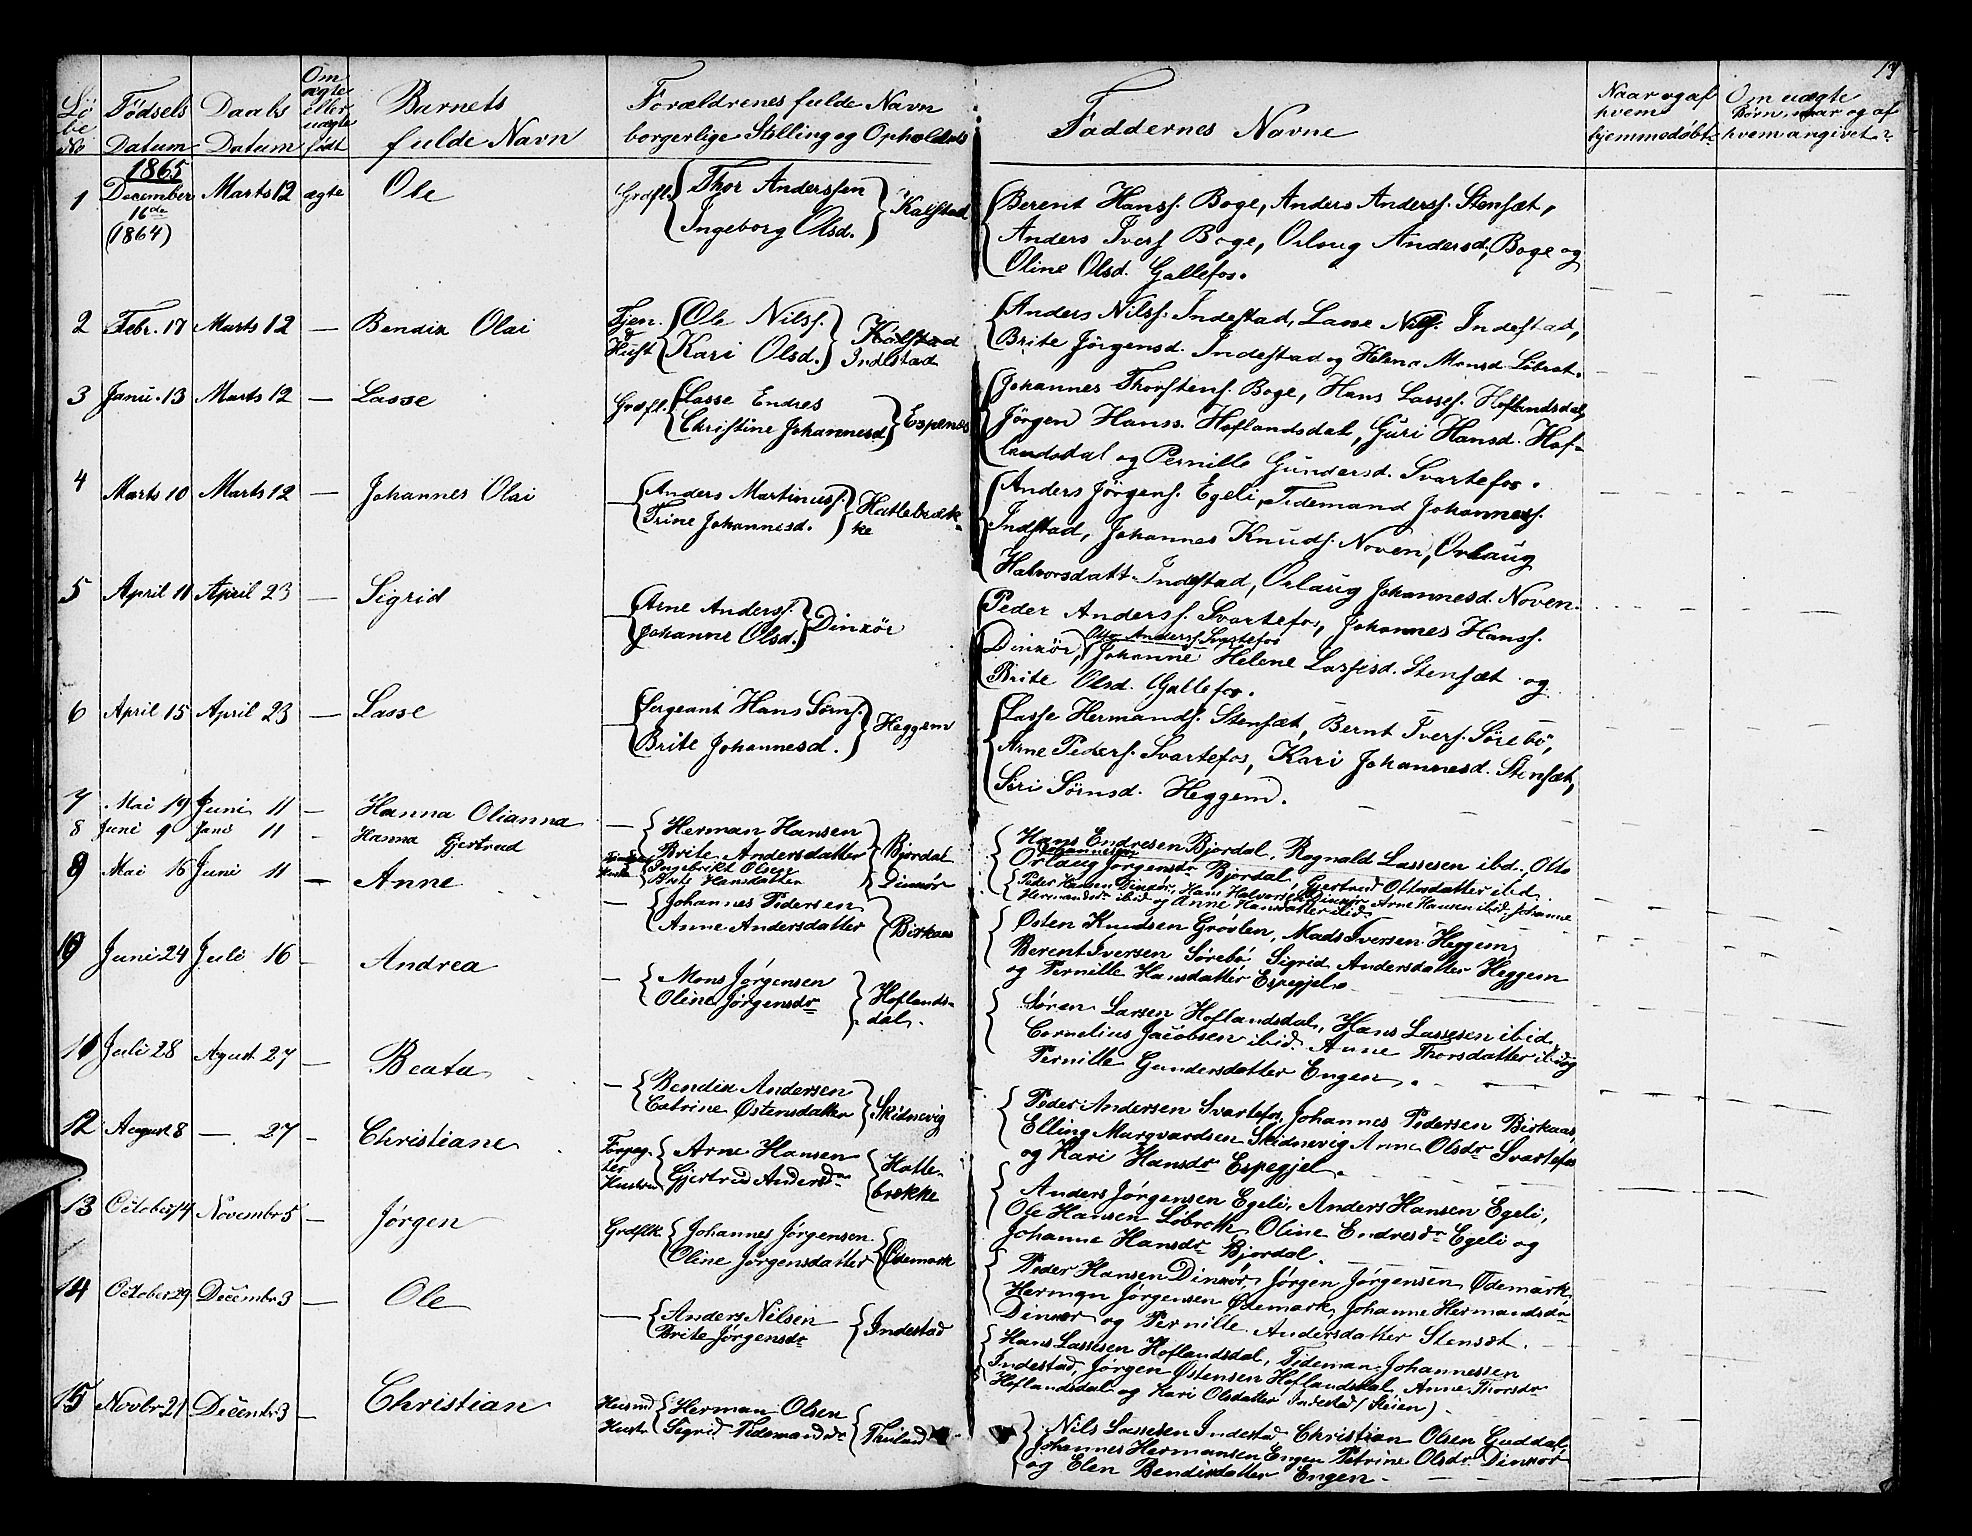 13
Löbe No | Födsels Datum | Daabs Datum | Om ægte eller uægte født | Barnets fulde Navn | Forældrenes fulde Navn borgerlige Stilling og Opholds | Faddernes Navne | Naar og af hvem hjemmedøbt | Om uægte Børn, naar og af hvem angivet?
1865
1 December 16de (1864) Marts 12 ægte Ole
Grdfl. Thor Anderssen
Ingeborg Olsd. Kalstad
Berent Hanss. Boge, Anders Anderss. Stensæt,
Anders Ivers Boge, Orlaug Andersd. Boge og
Oline Olsd. Gallefos.
2 Febr. 17 Marts 12 — Bendix Olai
Tjen. & Hust Ole Nilss. Kalstad
Kari Olsd. Indestad
Anders Nilss. Indestad, Lasse Nilss. Indestad,
Brite Jörgensd. Indestad og Helena Monsd. Löbrot.
3 Janu. 13 Marts 12 — Lasse
Grdfl. Lasse Endres
Christine Johannesd. Espenes
Johannes Thorstens. Boge, Hans Lasses. Hoflandsdal,
Jörgen Hanss. Hoflandsdal, Guri Hansd. Hof-
landsdal og Pernille Gundersd. Svartefos.
4 Marts 10 Marts 12 — Johannes Olai
— Anders Martinuss. Hatlebræk-
Trine Johannesd. ke
Anders Jörgens. Egeli, Tidemand Johanness.
Indstad, Johannes Knuds. Noven, Orlaug
Halvorsdatt. Indestad, Orlaug Johannesd. Noven.
5 April 11 April 23 — Sigrid
— Arne Anderss. Dinxör
Johanne Olsd.
Peder Anderss. Svartefos, Johannes Hanss.
Otto Anderss. Svartefos
Dinxör, Johanne Helene Lassesd. Stensæt og
Brite Olsd. Gallefos.
6 April 15 April 23 — Lasse
— Sergeant Hans Sörns. Heggem
Brite Johannesd.
Lasse Hermands. Stensæt, Bernt Ivers. Sörebö,
Arne Peders. Svartefos, Kari Johannesd. Stensæt,
Siri Sörnsd. Heggem.
7 Mai 19 Juni 11 — Hanna Olianna
— Herman Hansen Bjordal
Brite Andersdatter
Hans Endresen Bjordal, Rognald Lassesen ibd., Otto
Johannesen
Orlaug Jørgensdr Bjordal, Gjertrud Ottersdatter ibid.
8 Juni 9 Juni 11 - Hanna Gjertrud
Hustru Ingebrikt Olsen Dinxør
Brite Hansdatter
Peder Hansen Dinxør, Hans Halvorsen Dinxør, Arne Hansen ibid. Johanne
Hermandsdr ibid og Anne Hansdatter ibid.
9 Mai 16 Juni 11 — Anne
— Johannes Pedersen Birkaas
Anne Andersdatter
Østen Knudsen Grøvlen, Mads Iversen Heggem,
Berent Iversen Sørebø Sigrid Andersdatter Heggem
og Pernille Hansdatter Espegjel.
10 Juni 24 Juli 16 — Andrea
— Mons Jørgensen Hoflands-
Oline Jørgensdr dal.
Søren Larsen Hoflandsdal, Hans Lassesen ibid,
Cornelius Jacobsen ibid. Anne Thorsdatter ibid og
Pernille Gundersdatter Engen.
11 Juli 28 Agust 27 — Beata
— Bendix Andersen Skidnevig
Catrine Østensdatter
Peder Andersen Svartefos, Johannes Pedersen Birkaas,
Elling Murgvardsen Skidnevig Anne Olsdr Svartefos
og Kari Hansdr Espegjel.
12 August 8 — 27 — Christiane
Forpagter Hustru Arne Hansen Hatle-
Gjertrud Andersdr brekke
Anders Jørgensen Egeli, Anders Hansen Egeli,
Ole Hansen Løbroth, Oline Endresdr Egeli og
Johanne Hansdr Bjordal.
13 October 14 Novembr 5 — Jørgen
Grdflk. Johannes Jørgensen Ødemark
Oline Jørgensdatter
Peder Hansen Dinxør, Jørgen Jørgensen Ødemark,
Herman Jørgensen Ødemark, Johanne Hermandsdr
Dinxør og Pernille Andersdatter Stensæt.
14 October 29 Decembr 3 — Ole
— Anders Nilsen Indestad
Brite Jørgensdr
Hans Lassesen Hoflandsdal, Tideman Johannessen
Indestad, Jørgen Østensen Hoflandsdal, Anne Thorsdr
Hoflandsdal og Kari Olsdatter Indestad (Steien).
15 Novbr 21 Decembr 3 — Christian
Husmd Hustr Herman Olsen
Sigrid Tidemandsdr
Nils Lassesen Indestad Christian Olsen Guddal,
Johannes Hermansen Engen Petrine Olsdr Dinxør
og Elen Bendixdatter Engen.